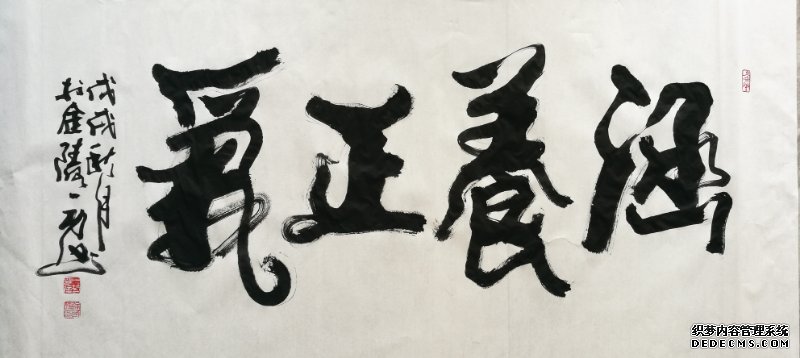 涵養正氣
戊戌秋月
於金陵
织梦内容管理系统
DEDECMS.COM